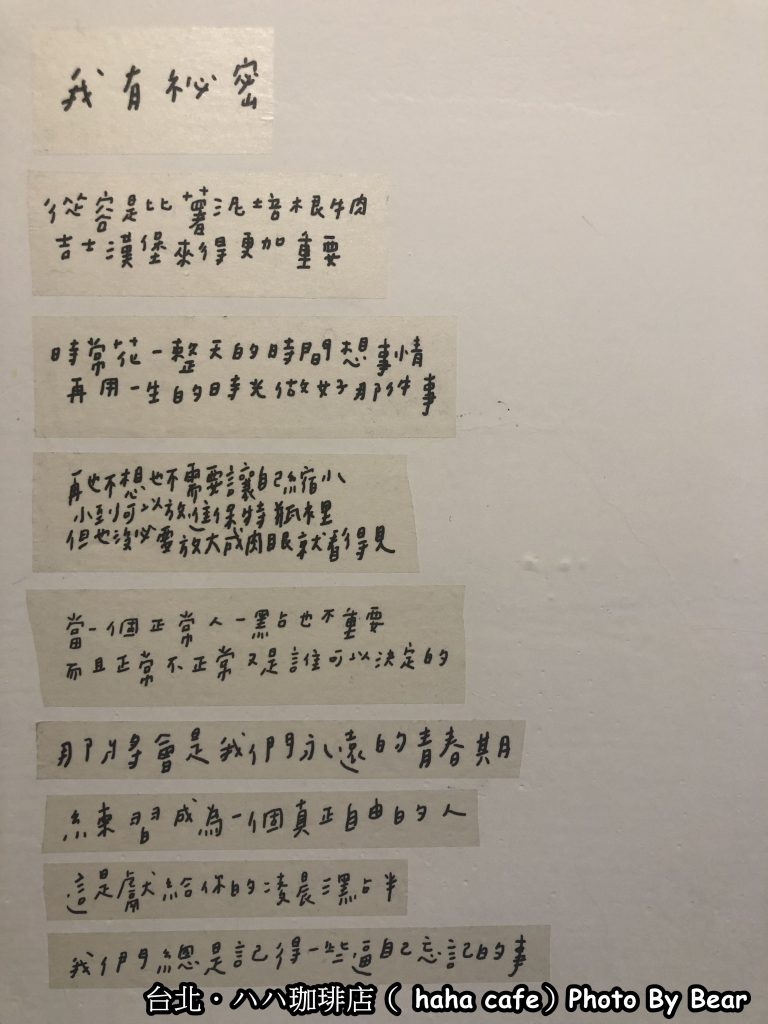 我有祕密
從容是比薯泥培根牛肉
吉士漢堡來得更加重要
時常花一整天的時間想事情
再用一生的時光做好那件事
再也不想也不需要讓自己縮小
小到可以放進保特瓶裡
但也沒必要放大成肉眼就看得見
當一個正常人一點也不重要
而且正常不正常又是誰可以決定的
那將會是我們永遠的青春期
練習成為一個真正自由的人
這是獻給你的凌晨三點半
我們總是記得一些逼自己忘記的事
台北・ハハ珈琲店 ( haha cafe) Photo By Bear